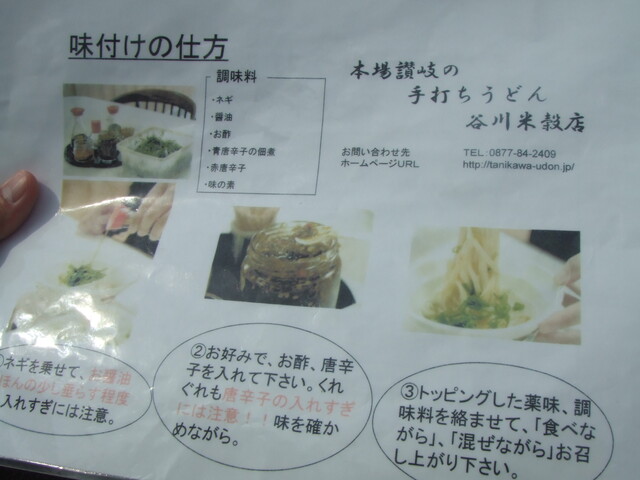 味付けの仕方
調味料
・ネギ
・醤油
・お酢
・青唐辛子の佃煮
・赤唐辛子
・味の素
本場讃岐の
手打ちうどん
谷川米穀店
お問い合わせ先
ホームページURL
TEL:0877-84-2409
http://tanikawa-udon.jp/
①ネギを乗せて、お醤油
ほんの少し垂らす程度
入れすぎには注意。
②お好みで、お酢、唐辛
子を入れて下さい。くれ
ぐれも唐辛子の入れすぎ
には注意！！味を確か
めながら。
③トッピングした薬味、調
味料を絡ませて、「食べな
がら」、「混ぜながら」お召
し上がり下さい。